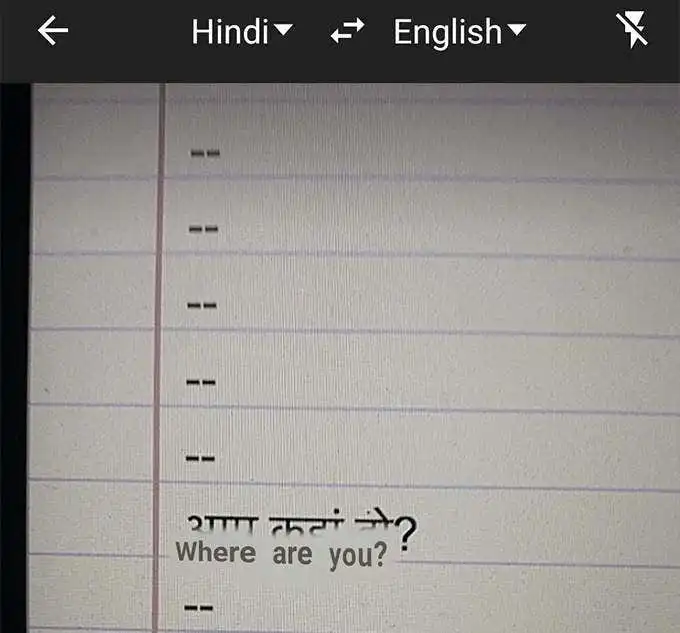 Hindi English
--
--
--
--
--
आप कहां हो?
Where are you?
--